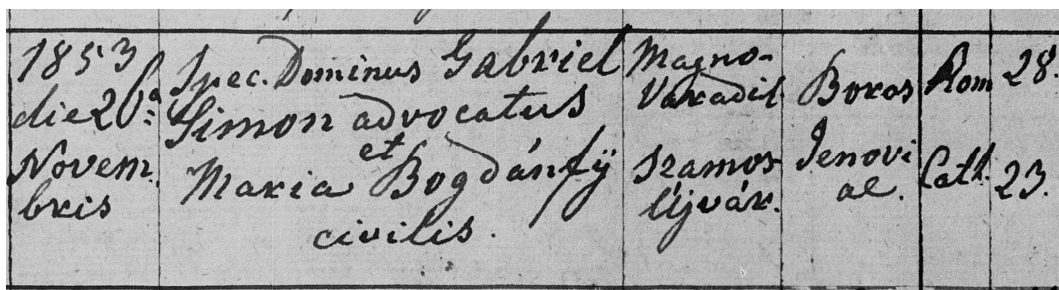 1853
die 26ª
Novem
bris
Spec. Dominus Gabriel
Simon advocatus
et
Maria Bogdánfÿ
civilis.
Magno-
Varadil
Szamos
Újvár.
Boros
Jenovi
ae.
Rom
Cath.
28.
23.